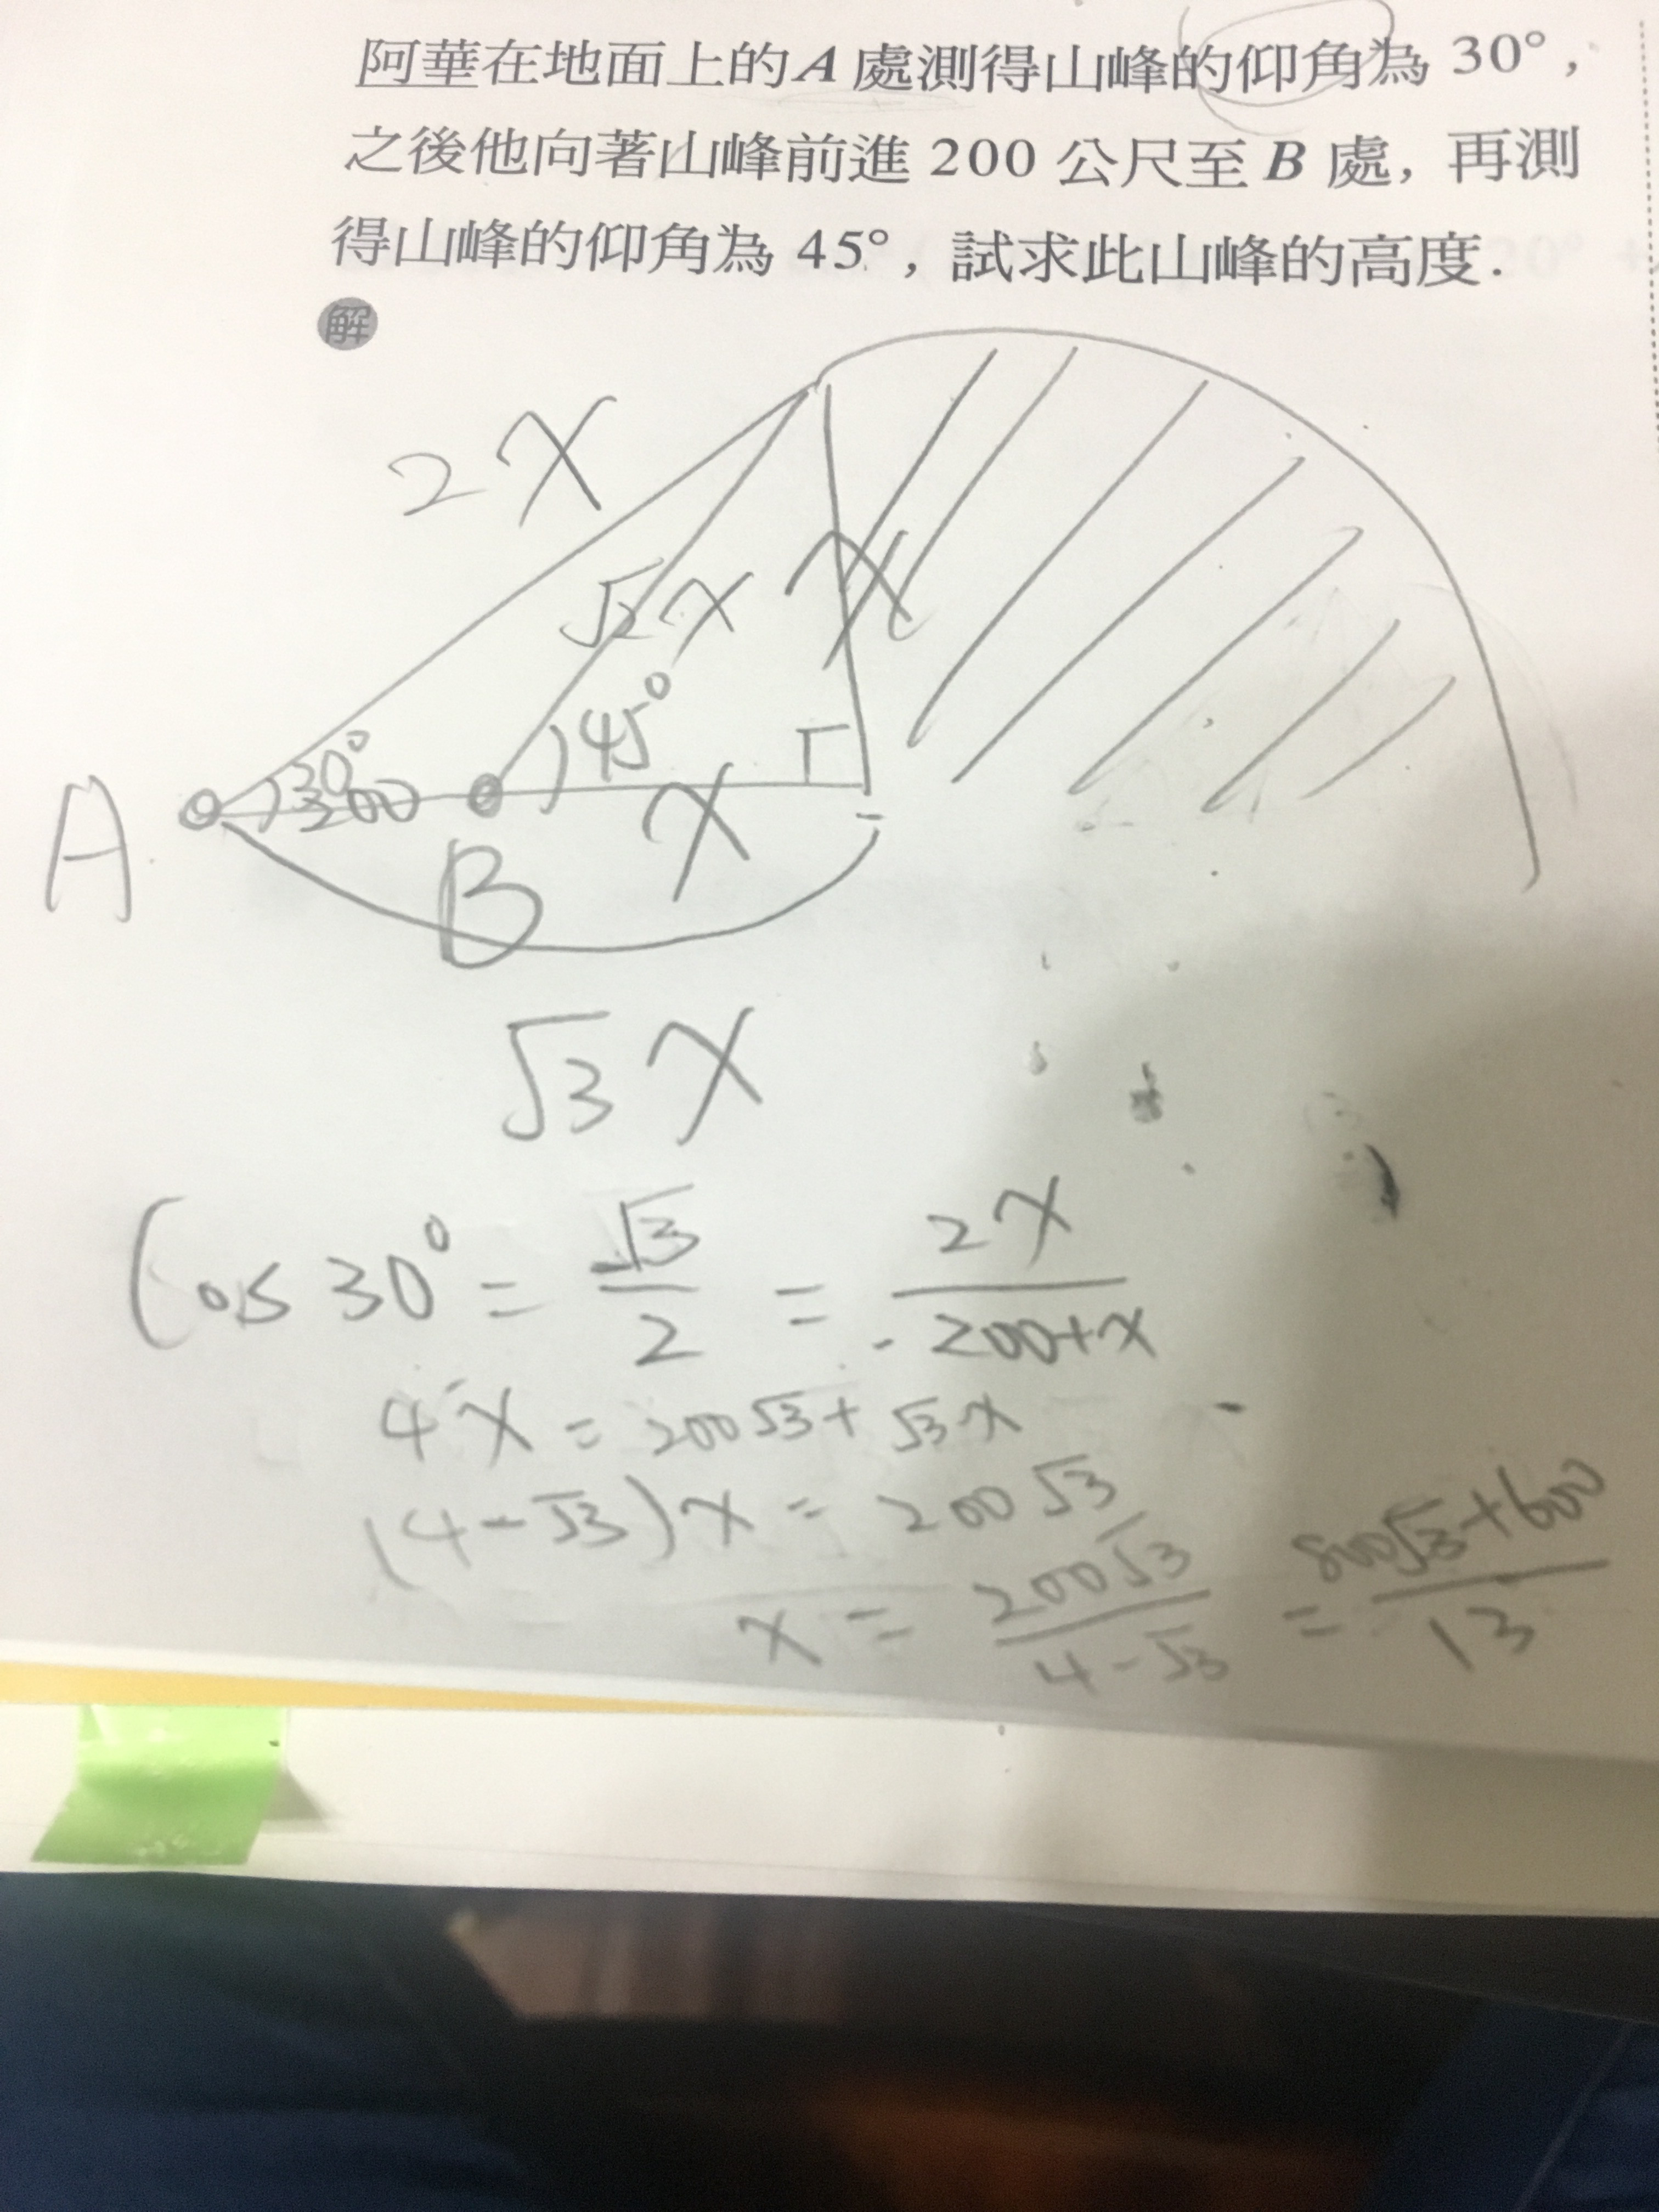 阿華在地面上的A處測得山峰的仰角為 30°，
之後他向著山峰前進 200 公尺至 B 處，再測
得山峰的仰角為 45°，試求此山峰的高度.
解
2x
√2x x
30° 45°
A 200 x
B
√3x
Cos 30° = √3/2 = 2x/200+x
4x = 200√3 + √3x
(4-√3)x = 200√3
x = 200√3/4-√3 = 800√3+600/13